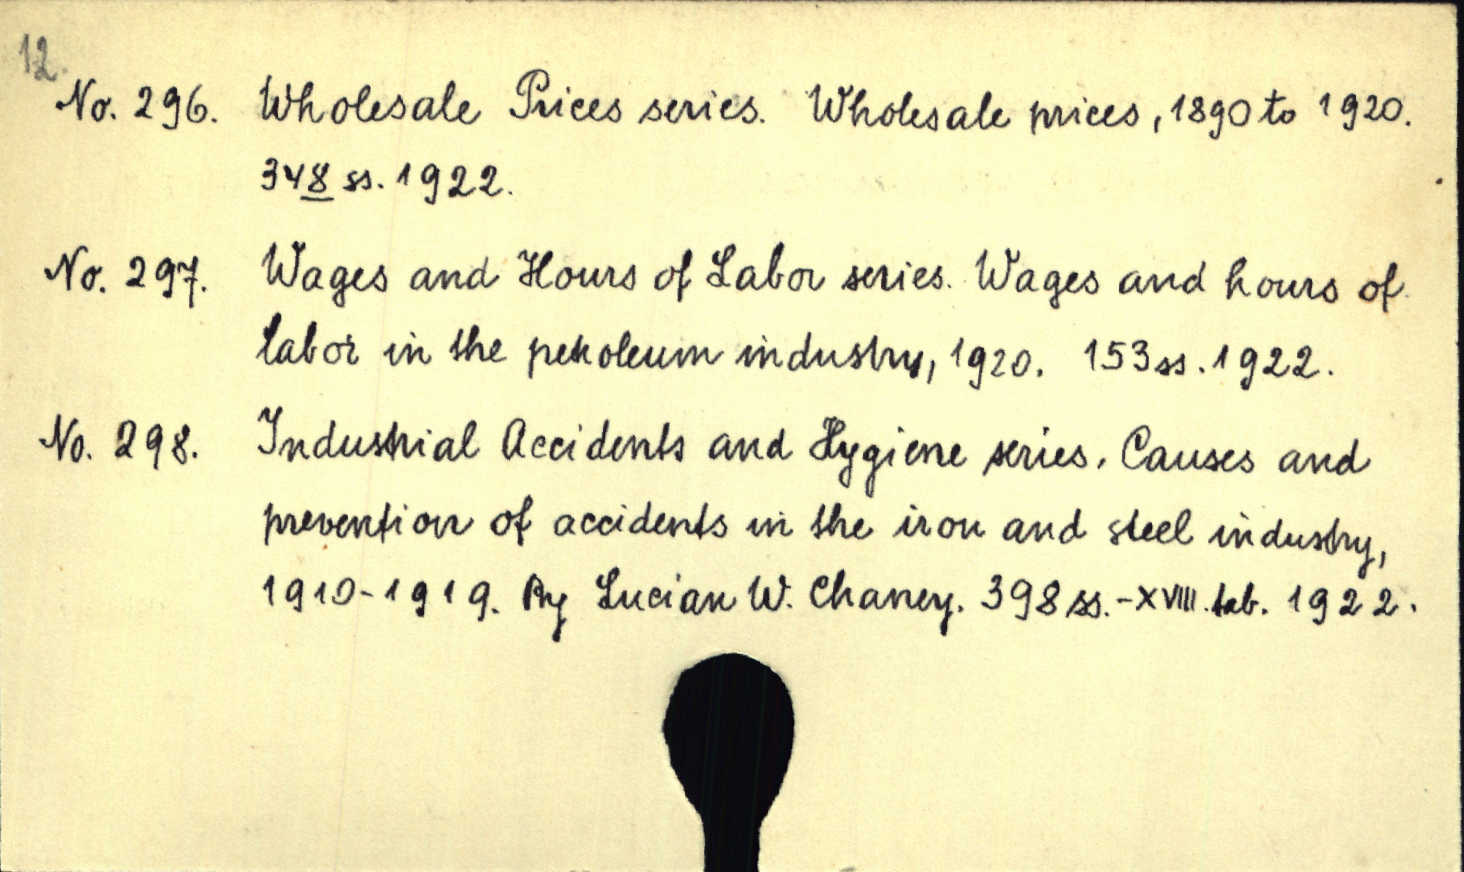 12.
No. 296. Wholesale Prices series. Wholesale prices, 1890 to 1920.
348 ss. 1922.
No. 297. Wages and Hours of Labor series. Wages and hours of
labor in the petroleum industry, 1920. 153 ss. 1922.
No. 298. Industrial Accidents and Hygiene series. Causes and
prevention of accidents in the iron and steel industry,
1910-1919. By Lucian W. Chaney. 398 ss.-XVIII. tab. 1922.